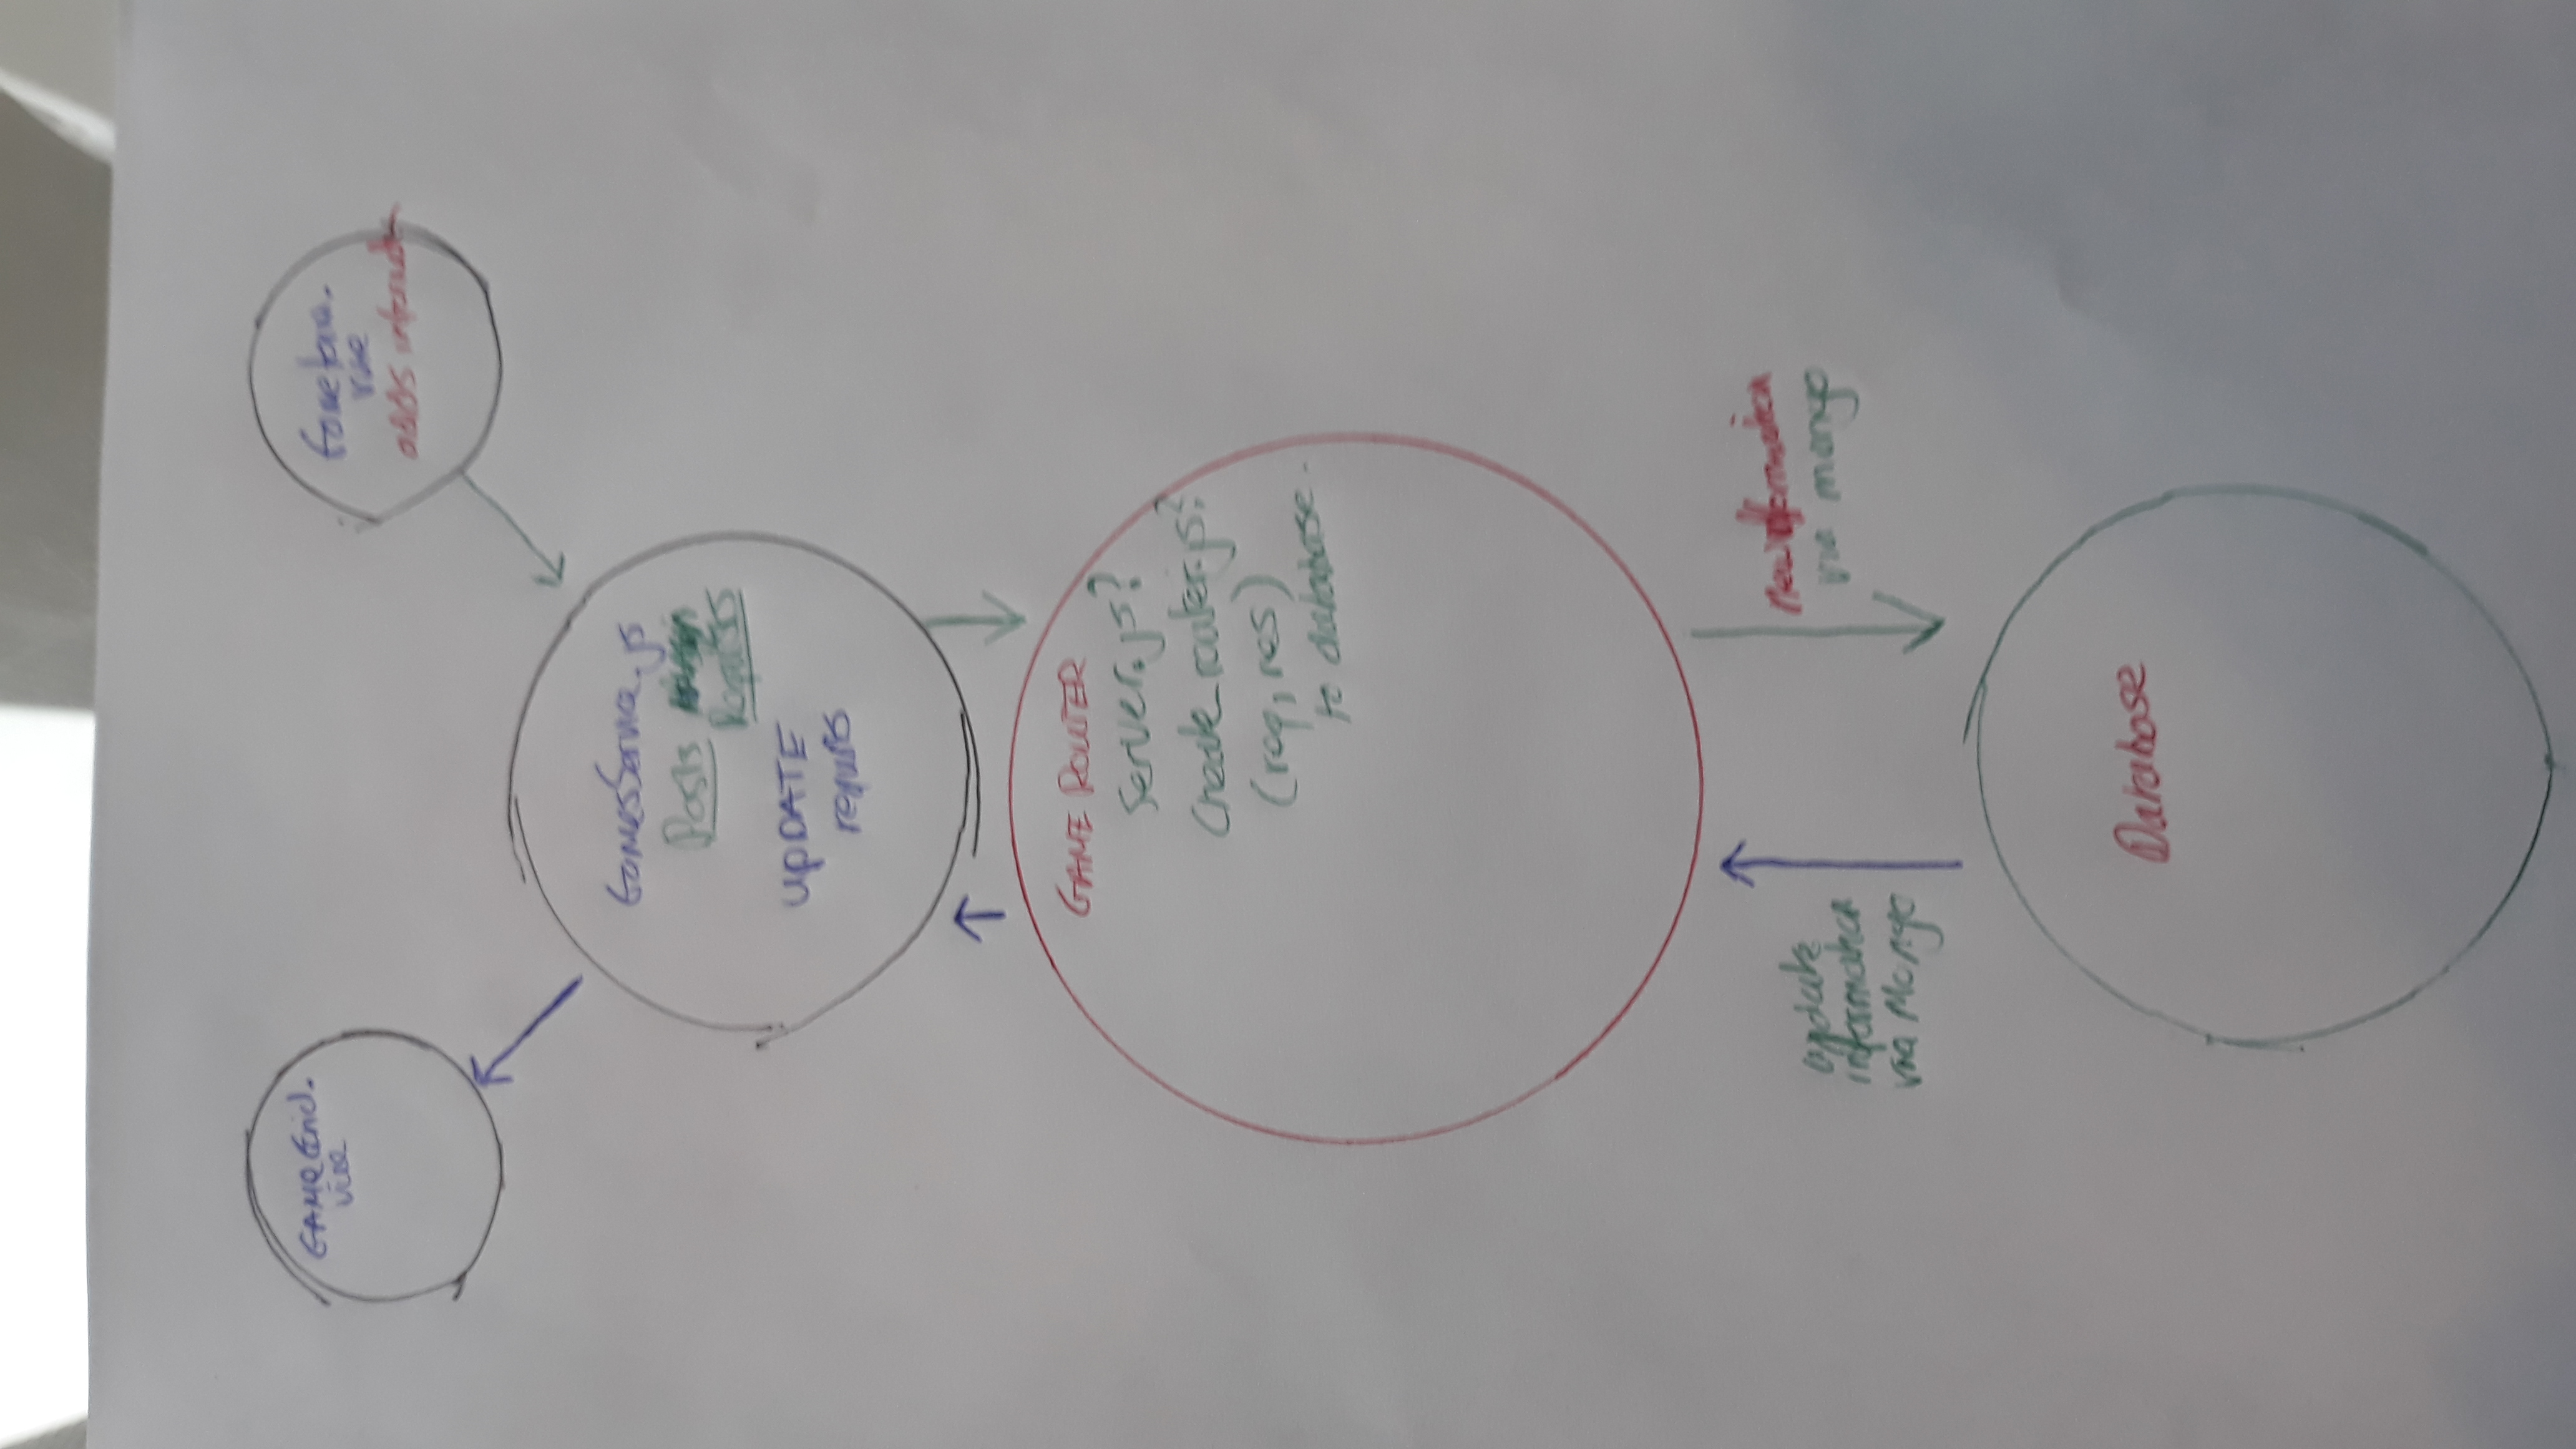 GAMEGrid.
vue
GameForm.
vue
adds
GamesService.js
Posts
Requests
UPDATE
requests
GAME ROUTER
Server.js?
Create_router.js?
(req, res)
to database.
update
information
via Mongo
new information
via mongo
Database